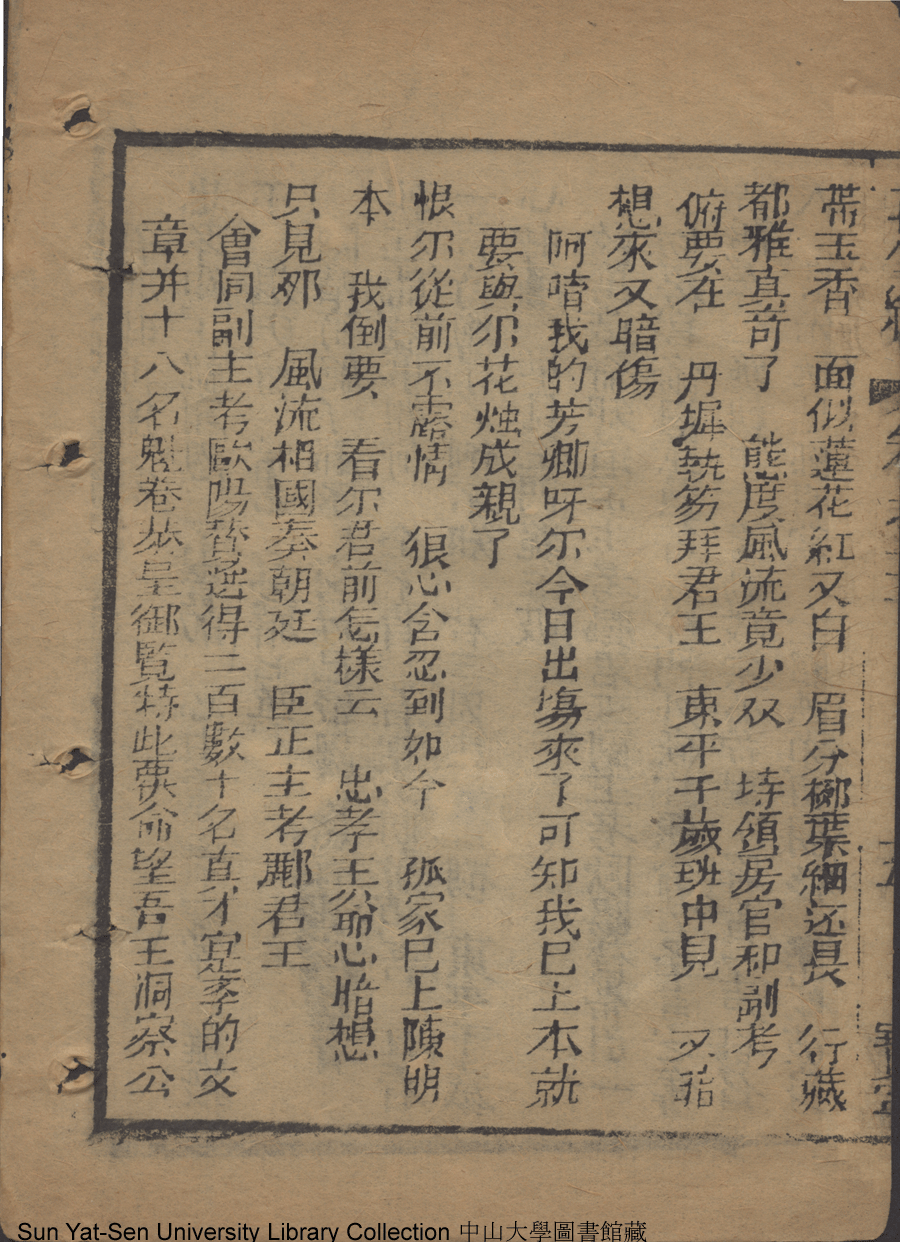 帶玉香　面似蓮花紅又白　眉分柳葉細还長　行藏
都雅真竒了　態度風流竟少双　垰領房官和副考
俯要在　丹墀執笏拜君王　東平千歲班中見　又暗
想來又暗傷
阿唷我的芳卿呀尔今日出塲來了可知我巳上本就
要與尔花燭成親了
恨尔從前不露情　狠心含忍到如今　孤家巳上陳明
本　我倒要　看尔君前怎樣云　忠孝王爺心暗想
只見那　風流相國奏朝廷　臣正主考酈君王
會同副主考歐陽贊選得二百數十名真才寔孝的文
章并十八名魁卷恭呈御覧特此覆命望吾王洞察公
Sun Yat-Sen University Library Collection 中山大學圖書館藏